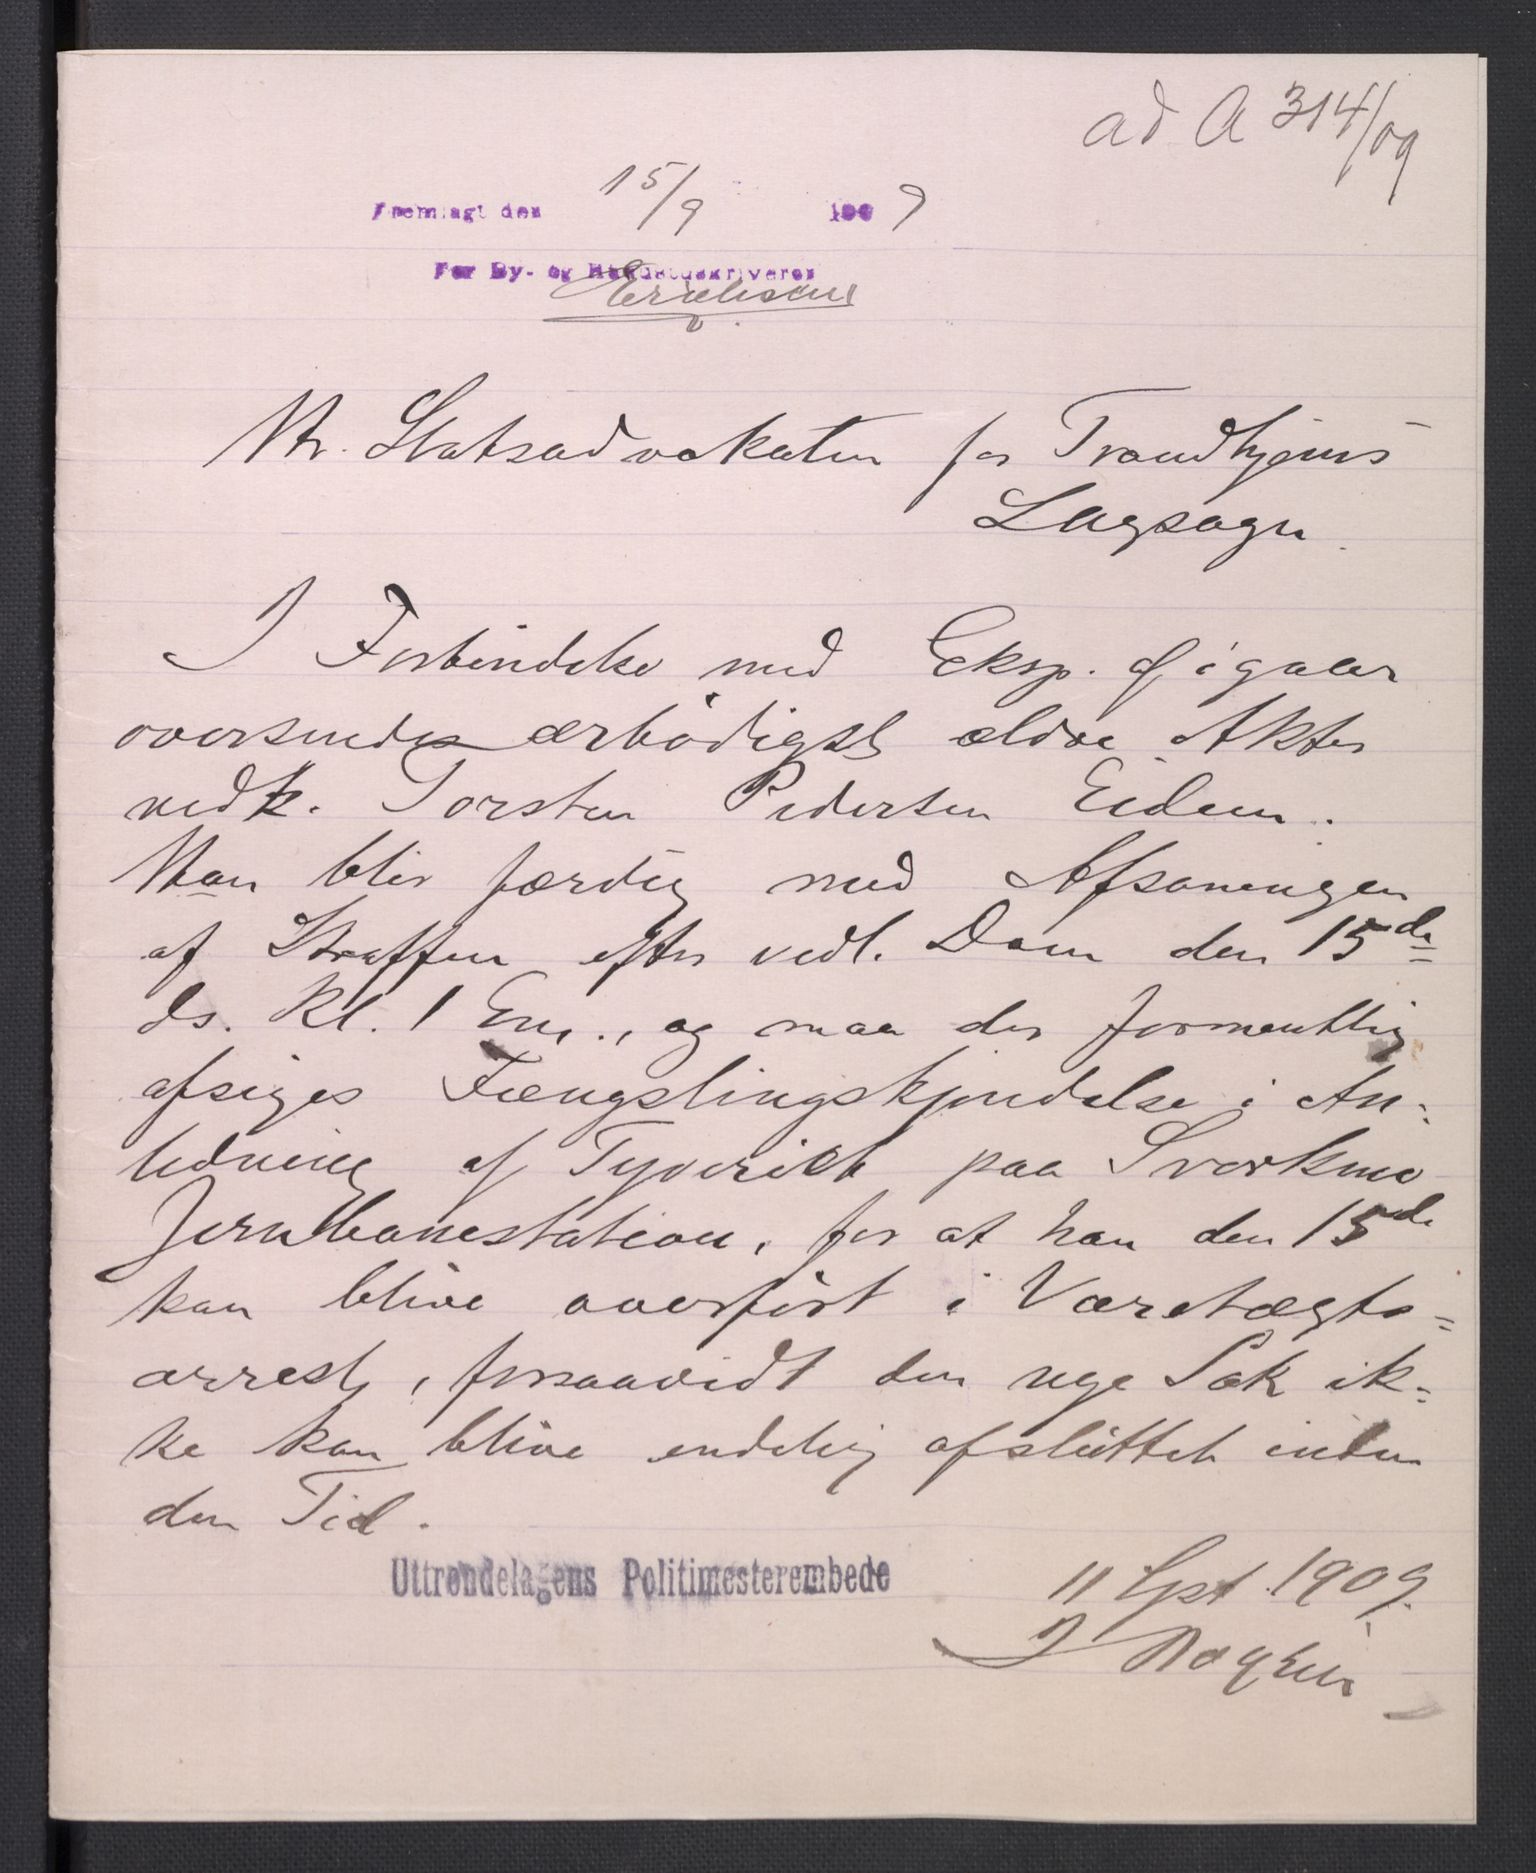 ad A 314/09
Fremlagt den 15/9 1909
For By- og Herredsskriveren
Hr. Statsadvokaten for Trondhjems
Lagsogn.
I Forbindelse med Eksp. af igaar
oversendes ærbödigst ældre Akter
vedk. Torsten Pedersen Eidem.
Han blir færdig med Afsoningen
af Straffen efter vedl. Dom den 15de
ds. Kl. 1 Em., og maa der formentlig
afsiges Fængslingskjendelse i An-
ledning af Tyveriet paa Svorkmo
Jernbanestation, for at han den 15de
kan blive overfört i Varetægts=
arrest, forsaavidt den nye Sak ik=
ke kan blive endelig afsluttet inden
den Tid.
Uttrøndelagens Politimesterembede
11 Spt 1909.